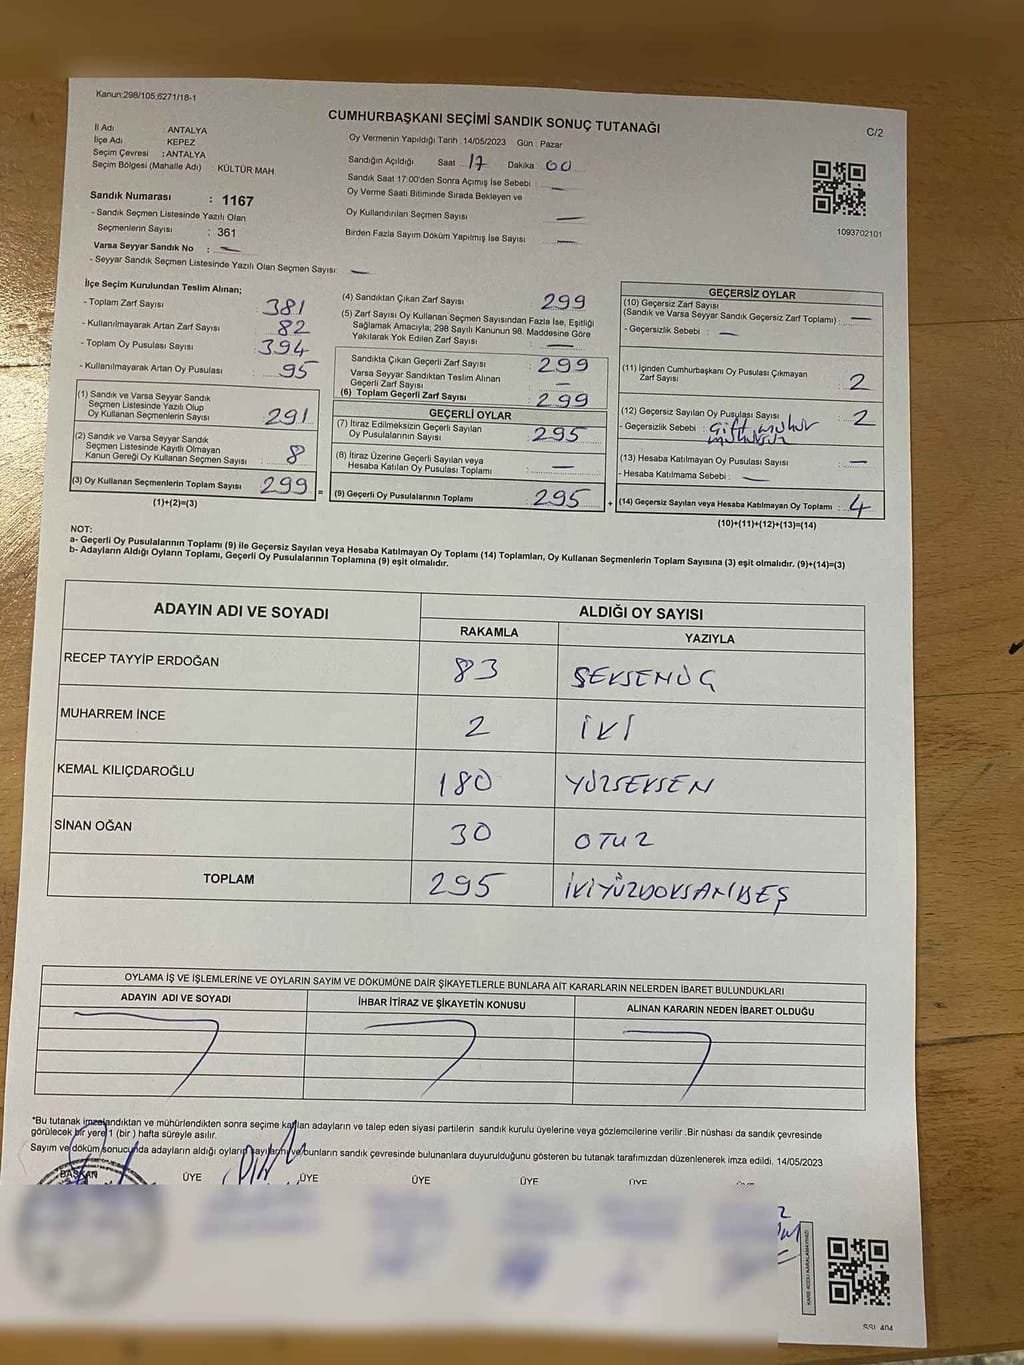 Kanun:298/105,6271/18-1
CUMHURBAŞKANI SEÇİMİ SANDIK SONUÇ TUTANAĞI
C/2
İl Adı : ANTALYA
İlçe Adı : KEPEZ
Seçim Çevresi : ANTALYA
Seçim Bölgesi (Mahalle Adı) : KÜLTÜR MAH
Sandık Numarası : 1167
- Sandık Seçmen Listesinde Yazılı Olan
Seçmenlerin Sayısı : 361
Varsa Seyyar Sandık No : —
- Seyyar Sandık Seçmen Listesinde Yazılı Olan Seçmen Sayısı: —
Oy Vermenin Yapıldığı Tarih :14/05/2023 Gün : Pazar
Sandığın Açıldığı Saat : 17 Dakika : 00
Sandık Saat 17:00'den Sonra Açımış İse Sebebi : —
Oy Verme Saati Bitiminde Sırada Bekleyen ve
Oy Kullandırılan Seçmen Sayısı —
Birden Fazla Sayım Döküm Yapılmış İse Sayısı : —
1093702101
İlçe Seçim Kurulundan Teslim Alınan;
- Toplam Zarf Sayısı : 381
- Kullanılmayarak Artan Zarf Sayısı : 82
- Toplam Oy Pusulası Sayısı : 394
- Kullanılmayarak Artan Oy Pusulası : 95
(1) Sandık ve Varsa Seyyar Sandık
Seçmen Listesinde Yazılı Olup
Oy Kullanan Seçmenlerin Sayısı : 291
(2) Sandık ve Varsa Seyyar Sandık
Seçmen Listesinde Kayıtlı Olmayan
Kanun Gereği Oy Kullanan Seçmen Sayısı : 8
(3) Oy Kullanan Seçmenlerin Toplam Sayısı : 299 =
(1)+(2)=(3)
(4) Sandıktan Çıkan Zarf Sayısı : 299
(5) Zarf Sayısı Oy Kullanan Seçmen Sayısından Fazla İse, Eşitliği
Sağlamak Amacıyla; 298 Sayılı Kanunun 98. Maddesine Göre
Yakılarak Yok Edilen Zarf Sayısı : —
Sandıkta Çıkan Geçerli Zarf Sayısı : 299
Varsa Seyyar Sandıktan Teslim Alınan
Geçerli Zarf Sayısı : —
(6) Toplam Geçerli Zarf Sayısı : 299
GEÇERLİ OYLAR
(7) İtiraz Edilmeksizin Geçerli Sayılan
Oy Pusulalarının Sayısı : 295
(8) İtiraz Üzerine Geçerli Sayılan veya
Hesaba Katılan Oy Pusulası Toplamı : —
(9) Geçerli Oy Pusulalarının Toplamı : 295 +
GEÇERSİZ OYLAR
(10) Geçersiz Zarf Sayısı
(Sandık ve Varsa Seyyar Sandık Geçersiz Zarf Toplamı) : —
- Geçersizlik Sebebi : —
(11) İçinden Cumhurbaşkanı Oy Pusulası Çıkmayan
Zarf Sayısı : 2
(12) Geçersiz Sayılan Oy Pusulası Sayısı : 2
- Geçersizlik Sebebi : Çift mühür
mühürsüz
(13) Hesaba Katılmayan Oy Pusulası Sayısı : —
- Hesaba Katılmama Sebebi : —
(14) Geçersiz Sayılan veya Hesaba Katılmayan Oy Toplamı : 4
(10)+(11)+(12)+(13)=(14)
NOT:
a- Geçerli Oy Pusulalarının Toplamı (9) ile Geçersiz Sayılan veya Hesaba Katılmayan Oy Toplamı (14) Toplamları, Oy Kullanan Seçmenlerin Toplam Sayısına (3) eşit olmalıdır. (9)+(14)=(3)
b- Adayların Aldığı Oyların Toplamı, Geçerli Oy Pusulalarının Toplamına (9) eşit olmalıdır.
ADAYIN ADI VE SOYADI ALDIĞI OY SAYISI
RAKAMLA YAZIYLA
RECEP TAYYİP ERDOĞAN 83 SEKSENÜÇ
MUHARREM İNCE 2 İKİ
KEMAL KILIÇDAROĞLU 180 YÜZSEKSEN
SİNAN OĞAN 30 OTUZ
TOPLAM 295 İKİYÜZDOKSANBEŞ
OYLAMA İŞ VE İŞLEMLERİNE VE OYLARIN SAYIM VE DÖKÜMÜNE DAİR ŞİKAYETLERLE BUNLARA AİT KARARLARIN NELERDEN İBARET BULUNDUKLARI
ADAYIN ADI VE SOYADI İHBAR İTİRAZ VE ŞİKAYETİN KONUSU ALINAN KARARIN NEDEN İBARET OLDUĞU
*Bu tutanak imzalandıktan ve mühürlendikten sonra seçime katılan adayların ve talep eden siyasi partilerin sandık kurulu üyelerine veya gözlemcilerine verilir .Bir nüshası da sandık çevresinde
görülecek bir yere 1 (bir ) hafta süreyle asılır.
Sayım ve döküm sonucunda adayların aldığı oyların sayılarını ve bunların sandık çevresinde bulunanlara duyurulduğunu gösteren bu tutanak tarafımızdan düzenlenerek imza edildi. 14/05/2023
BAŞKAN ÜYE ÜYE ÜYE ÜYE ÜYE
KARE KODU KARALAMAYINIZ!